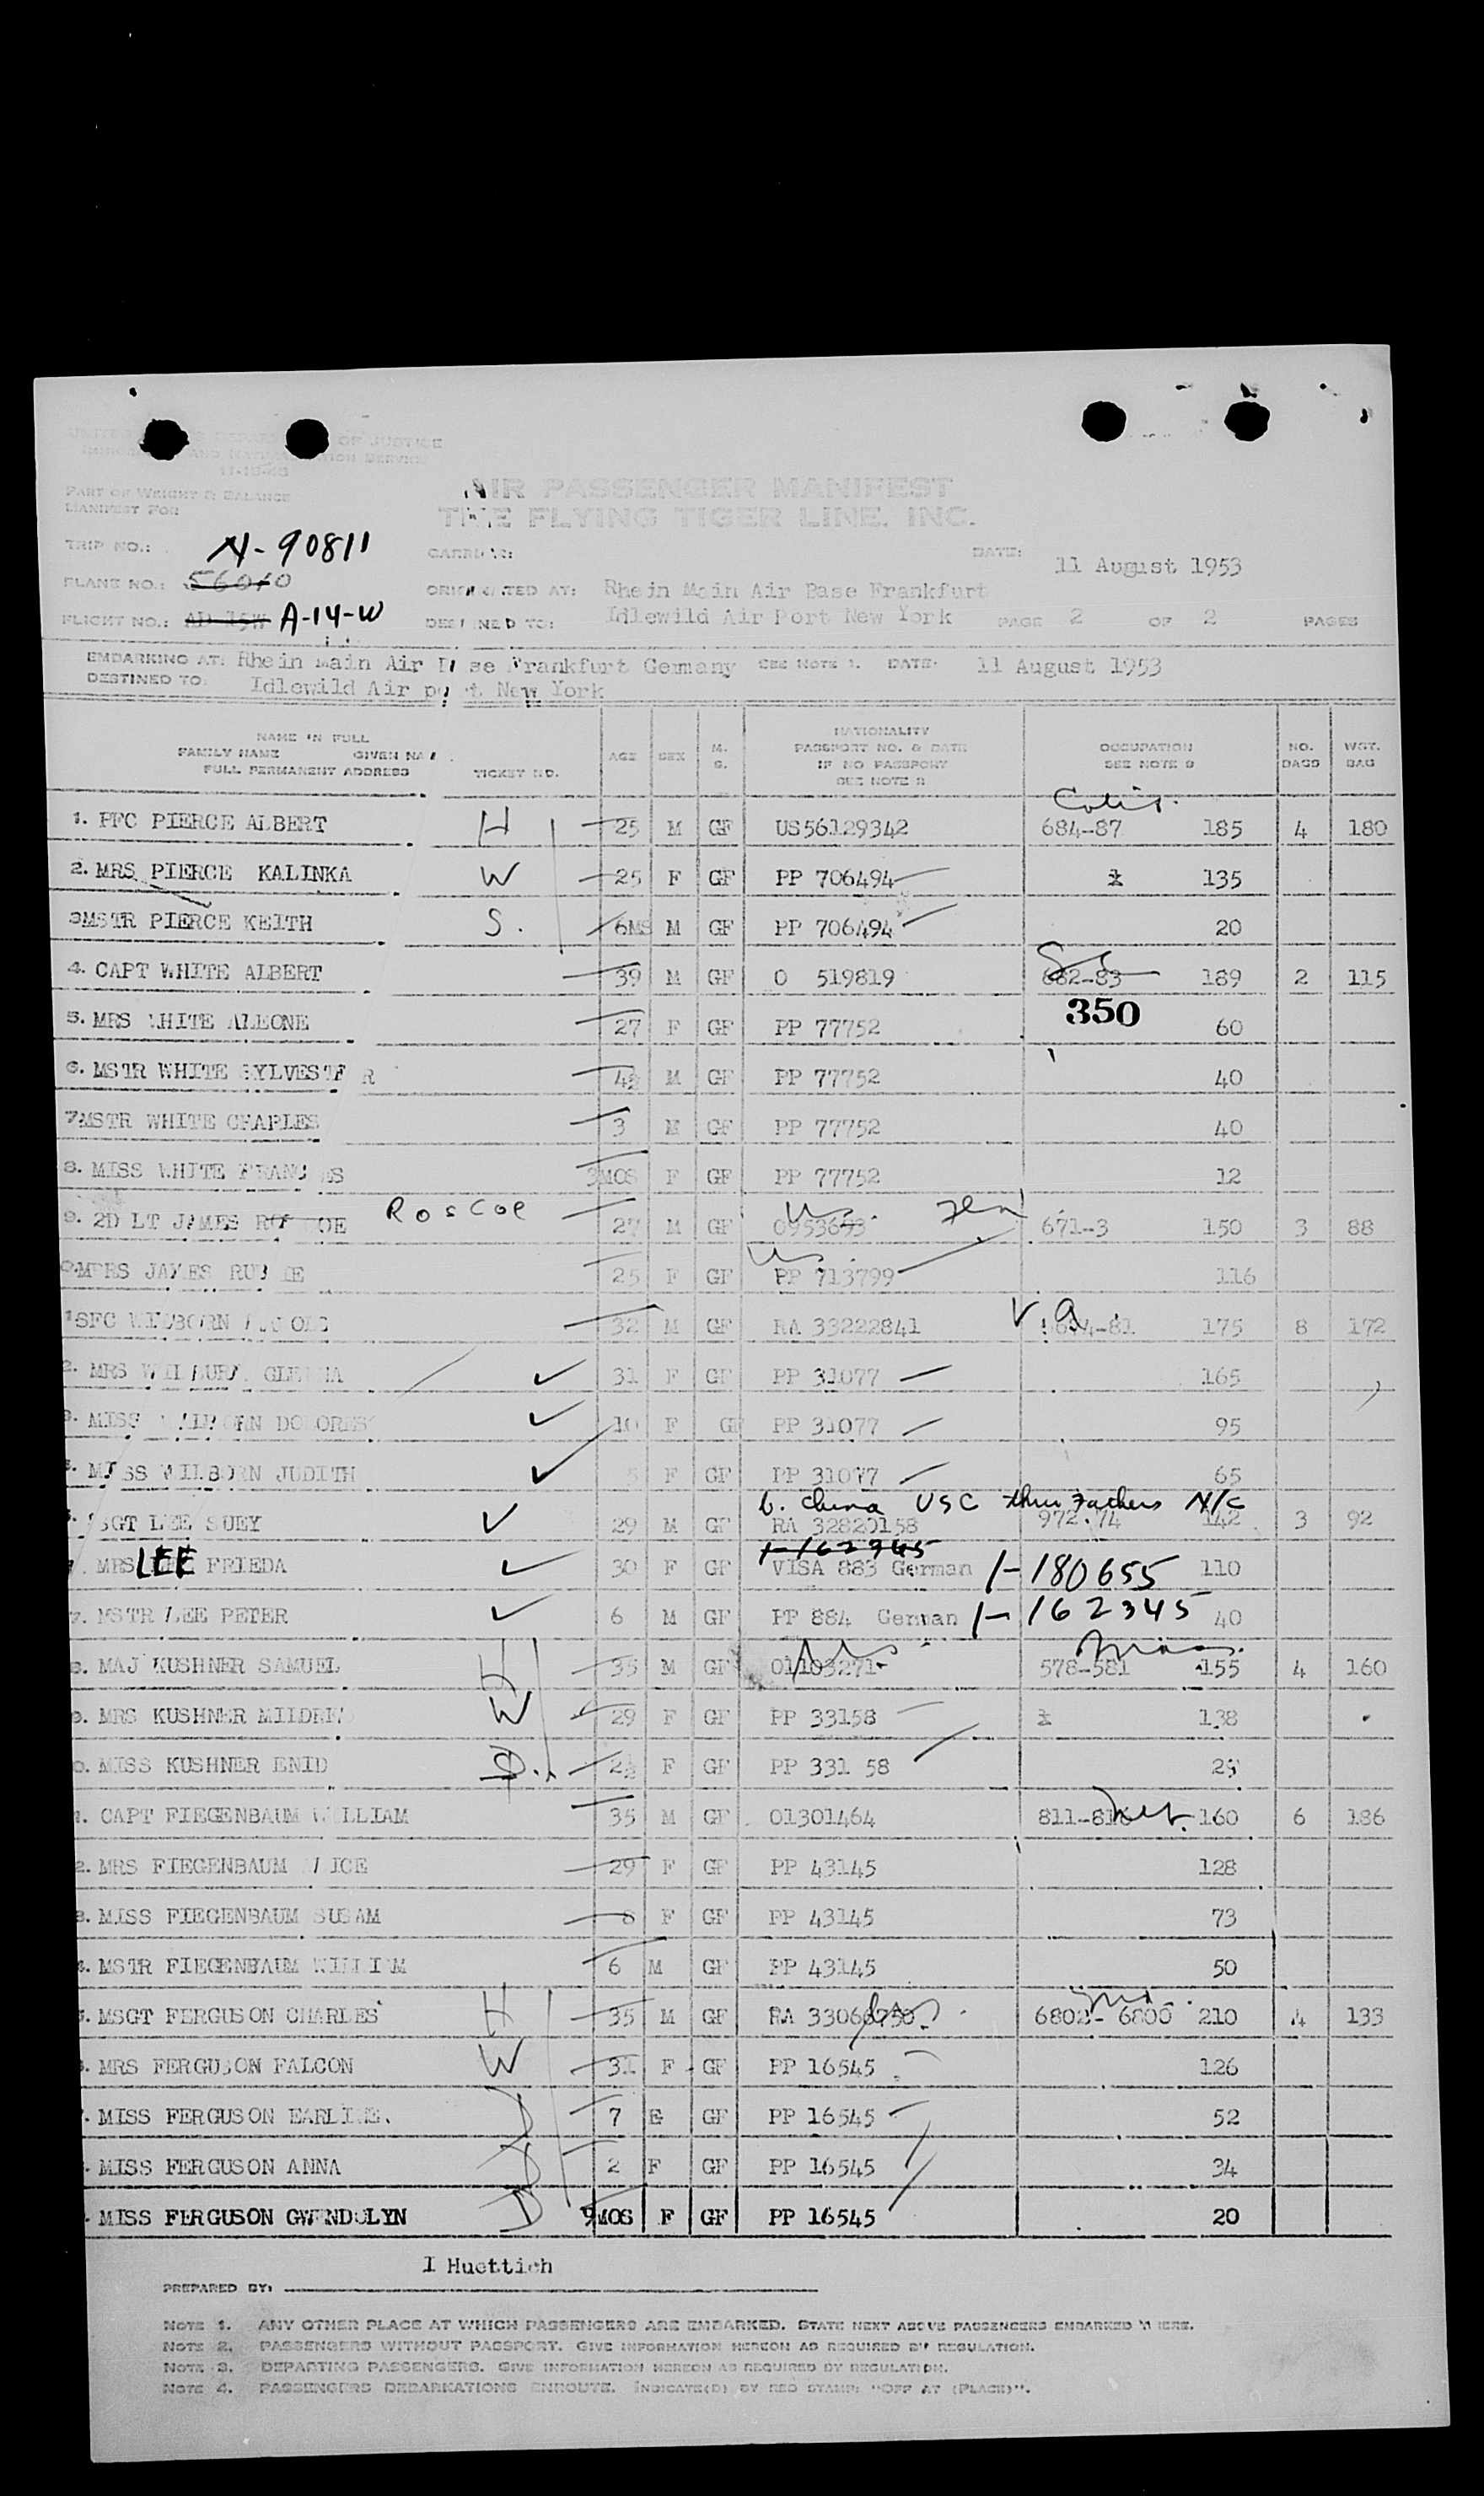 UNITED STATES DEPARTMENT OF JUSTICE
IMMIGRATION AND NATURALIZATION SERVICE
PART OF WEIGHT & BALANCE
MANIFEST FOR
AIR PASSENGER MANIFEST
THE FLYING TIGER LINE, INC.
TRIP NO.: N-90811
CARRIER:
DATE: 11 August 1953
PLANE NO.: 56010
ORIGINATED AT: Rhein Main Air Base Frankfurt
FLIGHT NO.: AD 15W A-14-W
DESTINED TO: Idlewild Air Port New York PAGE 2 OF 2 PAGES
EMBARKING AT: Rhein Main Air Base Frankfurt Gemany SEE NOTE 1. DATE: 11 August 1953
DESTINED TO: Idlewild Air port New York
NAME IN FULL
FAMILY NAME GIVEN NAME
FULL PERMANENT ADDRESS TICKET NO. AGE SEX M. S. NATIONALITY PASSPORT NO. & DATE IF NO PASSPORT SEE NOTE 2 OCCUPATION SEE NOTE 3 NO. BAGS WGT. BAG
1. PFC PIERCE ALBERT H 25 M GF US56129342 684-87 185 4 180
2. MRS PIERCE KALINKA W 25 F GF PP 706494 135
3 MSTR PIERCE KEITH S. 6MS M GF PP 706494 20
4. CAPT WHITE ALBERT 39 M GF O 519819 682-83 189 2 115
5. MRS WHITE ALEONE 27 F GF PP 77752 350 60
6. MSTR WHITE SYLVESTER 4½ M GF PP 77752 40
7. MSTR WHITE CHARLES 3 M GF PP 77752 40
8. MISS WHITE FRANCES 3MOS F GF PP 77752 12
9. 2D LT JAMES ROSCOE Roscoe 27 M GF 0953693 671-3 150 3 88
MRS JAMES RUBIE 25 F GF PP 713799 116
SFC WILBORN 32 M GF RA 33222841 Va. 175 8 172
2. MRS WILBURN GLENNA 31 F GF PP 31077 165
3. MISS WILBORN DOLORES 10 F GF PP 31077 95
MISS WILBORN JUDITH 5 F GF PP 31077 65
b. China USC thru Fathers N/C
SGT LEE SUEY 29 M GF RA 32820158 972.74 142 3 92
1-162345
MRS LEE FRIEDA 30 F GF VISA 883 German 1-180655 110
7. MSTR LEE PETER 6 M GF PP 884 German 1-162345 40
8. MAJ KUSHNER SAMUEL H 35 M GF 01103271 578-581 155 4 160
9. MRS KUSHNER MILDRED W 29 F GF PP 33158 138
0. MISS KUSHNER ENID D. 2½ F GF PP 331 58 29
1. CAPT FIEGENBAUM WILLIAM 35 M GF 01301464 160 6 186
2. MRS FIEGENBAUM ALICE 29 F GF PP 43145 128
3. MISS FIEGENBAUM SUSAM 8 F GF PP 43145 73
4. MSTR FIEGENBAUM WILLIAM 6 M GF PP 43145 50
5. MSGT FERGUSON CHARLES H 35 M GF RA 33066750 6802-6800 210 4 133
MRS FERGUSON FALCON W 31 F GF PP 16545 126
MISS FERGUSON EARLINE. D 7 F GF PP 16545 52
MISS FERGUSON ANNA D 2 F GF PP 16545 34
MISS FERGUSON GWENDOLYN D 9MOS F GF PP 16545 20
I Huettich
PREPARED BY:
NOTE 1. ANY OTHER PLACE AT WHICH PASSENGERS ARE EMBARKED. STATE NEXT ABOVE PASSENGERS EMBARKED THERE.
NOTE 2. PASSENGERS WITHOUT PASSPORT. GIVE INFORMATION HEREON AS REQUIRED BY REGULATION.
NOTE 3. DEPARTING PASSENGERS. GIVE INFORMATION HEREON AS REQUIRED BY REGULATION.
NOTE 4. PASSENGERS DEBARKATIONS ENROUTE. INDICATE(D) BY RED STAMP: "OFF AT (PLACE)".